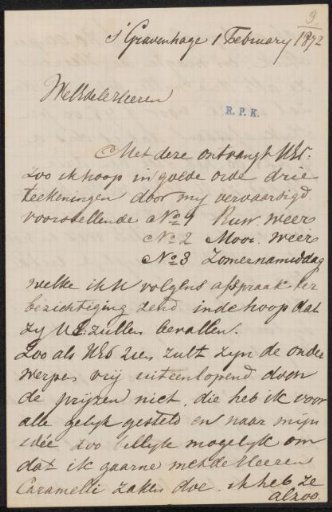 9
s'Gravenhage 1 February 1872
WelEdele Heeren
R.P.K.
Met deze ontvangt UEd.
zoo ik hoop in goede orde drie
teekeningen door my vervaardigd
voorstellende No 1 Ruw weer
No 2 Mooi weer
No 3 Zomernamiddag
welke ik U volgens afspraak ter
bezichtiging zend, in de hoop dat
zy UE. zullen bevallen.
Zoo als UEd zien zult zyn de onder
werpen vry uiteenlopend doch
de pryzen niet, die heb ik voor
alle gelyk gesteld en naar mijn
idée zoo billyk mogelyk om
dat ik gaarne met de Heeren
Caramelli zaken doe. ik heb ze
alzoo